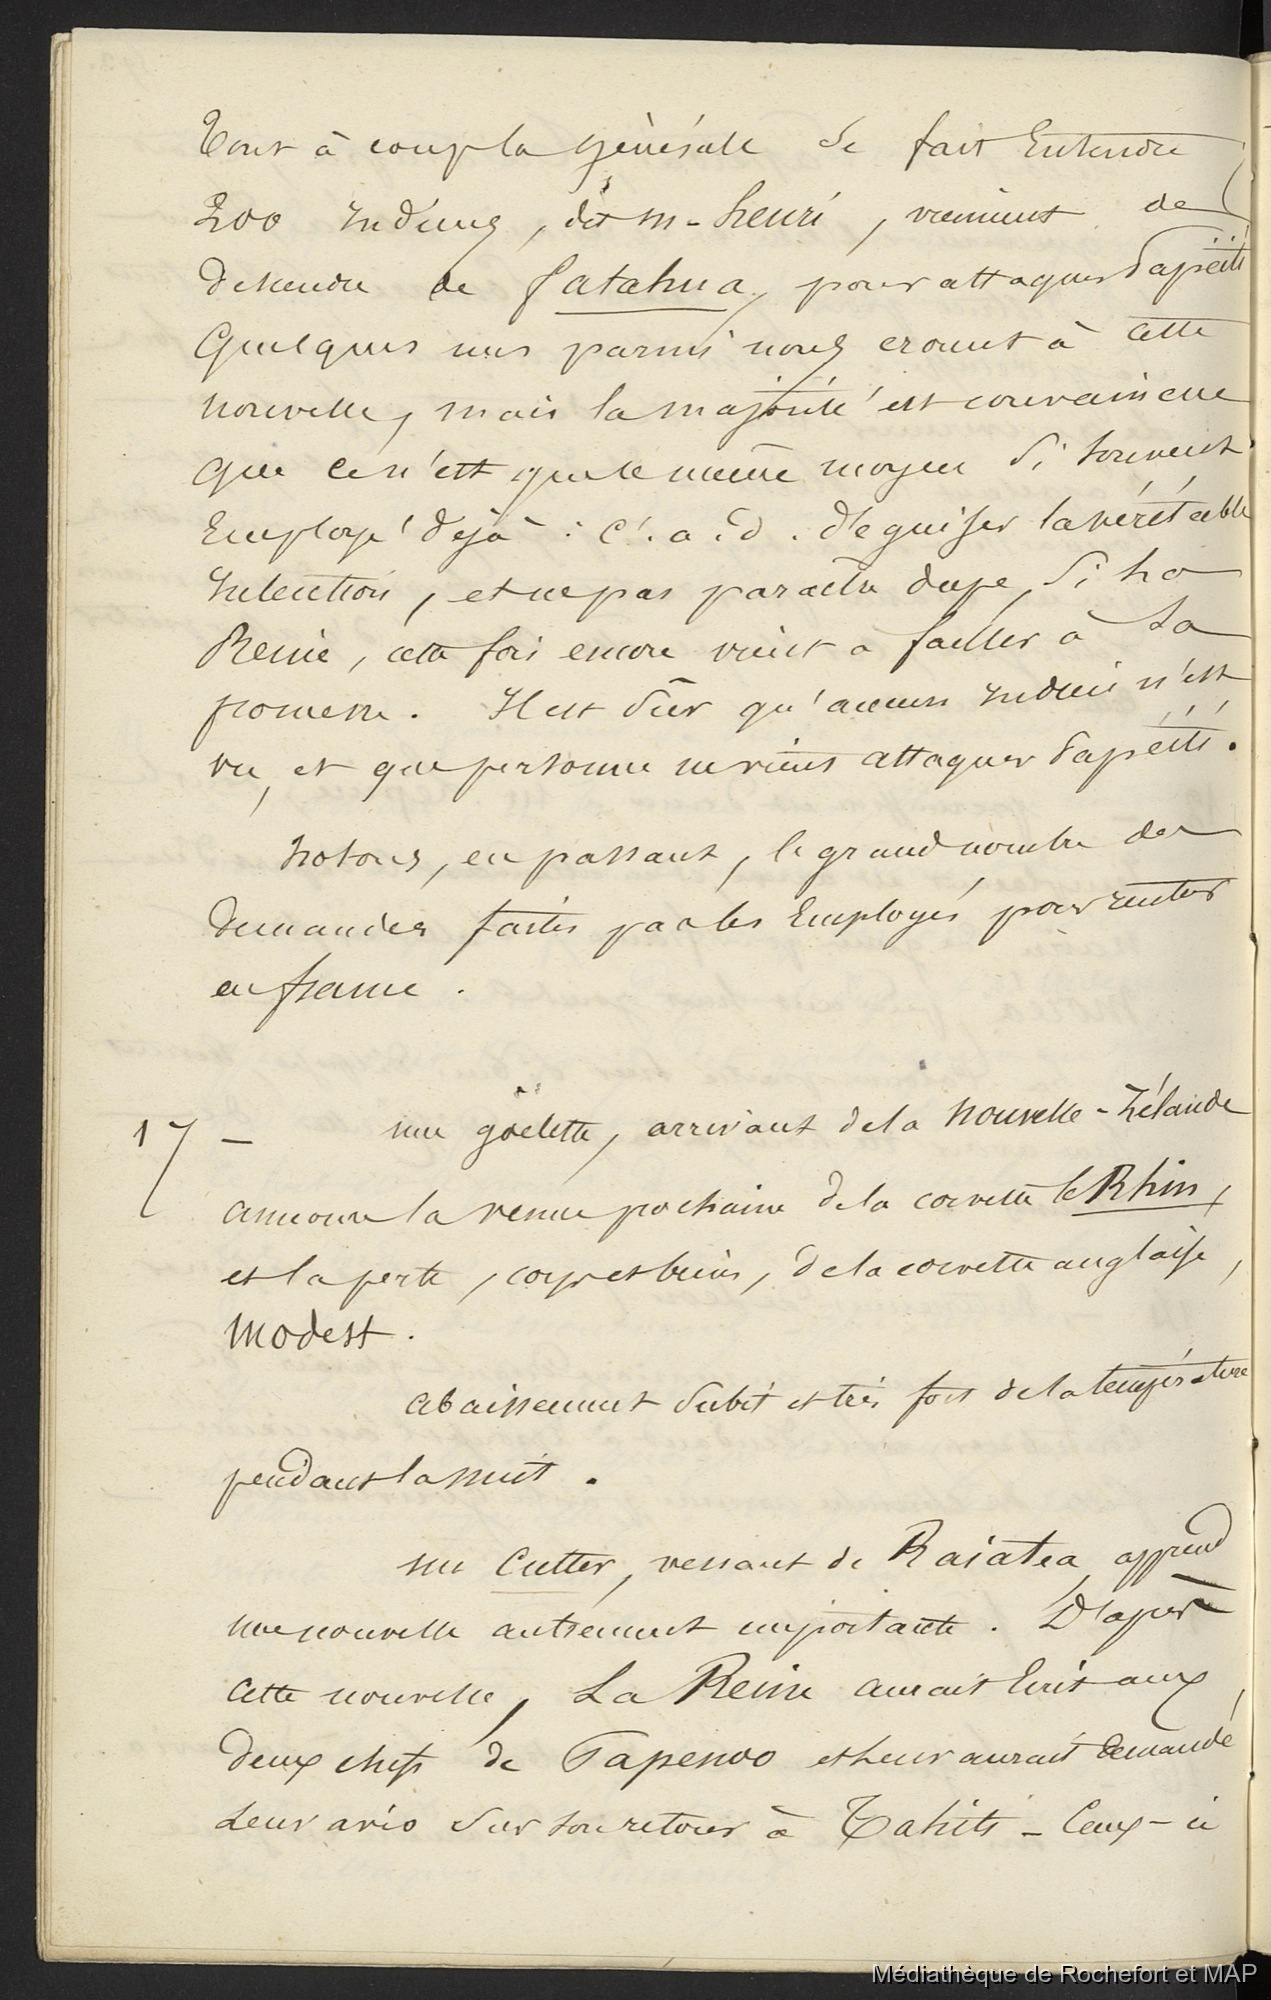 Tout à coup la générale se fait Entendre
200 Indiens, dit m-henri, viennent de
descendre de fatahua, pour attaquer Papéiti
Quelques uns parmi nous croient à cette
nouvelle, mais la majorité est convaincue
que ce n'est que le même moyen si souvent
Employé déjà : c'.a.d. déguiser la véritable
Intention, et ne pas paraître dupe, si La
Reine, cette fois encore vient à faillir à sa
promesse. Il est sûr qu'aucun Indien n'est
vu, et que personne ne vient attaquer Papéiti.
Notons, en passant, le grand nombre des
demandes faites par les Employés pour rentrer
en france.
17 — une goëlette, arrivant de la Nouvelle-Zélande
annonce la venue prochaine de la corvette le Rhin,
et la perte, corps et biens, de la corvette anglaise,
Modest.
abaissement subit et très fort de la température
pendant la nuit.
un Cutter, venant de Raiatea, apprend
une nouvelle autrement importante. D'après
cette nouvelle, La Reine aurait Ecrit aux
deux chefs de Papenoo et leur aurait demandé
Leur avis sur son retour à Tahiti - Ceux-ci
Médiathèque de Rochefort et MAP